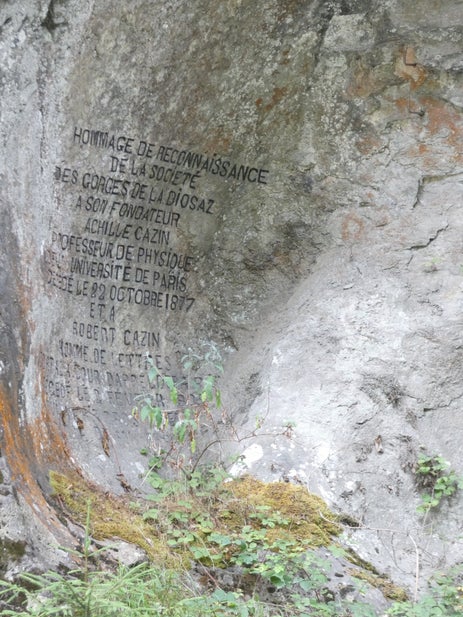 HOMMAGE DE RECONNAISSANCE
DE LA SOCIETE
DES GORGES DE LA DIOSAZ
A SON FONDATEUR
ACHILLE CAZIN
PROFESSEUR DE PHYSIQUE
UNIVERSITÉ DE PARIS
LE 22 OCTOBRE 1877
ET A
ROBERT CAZIN
HOMME DE LETTRES
COUR